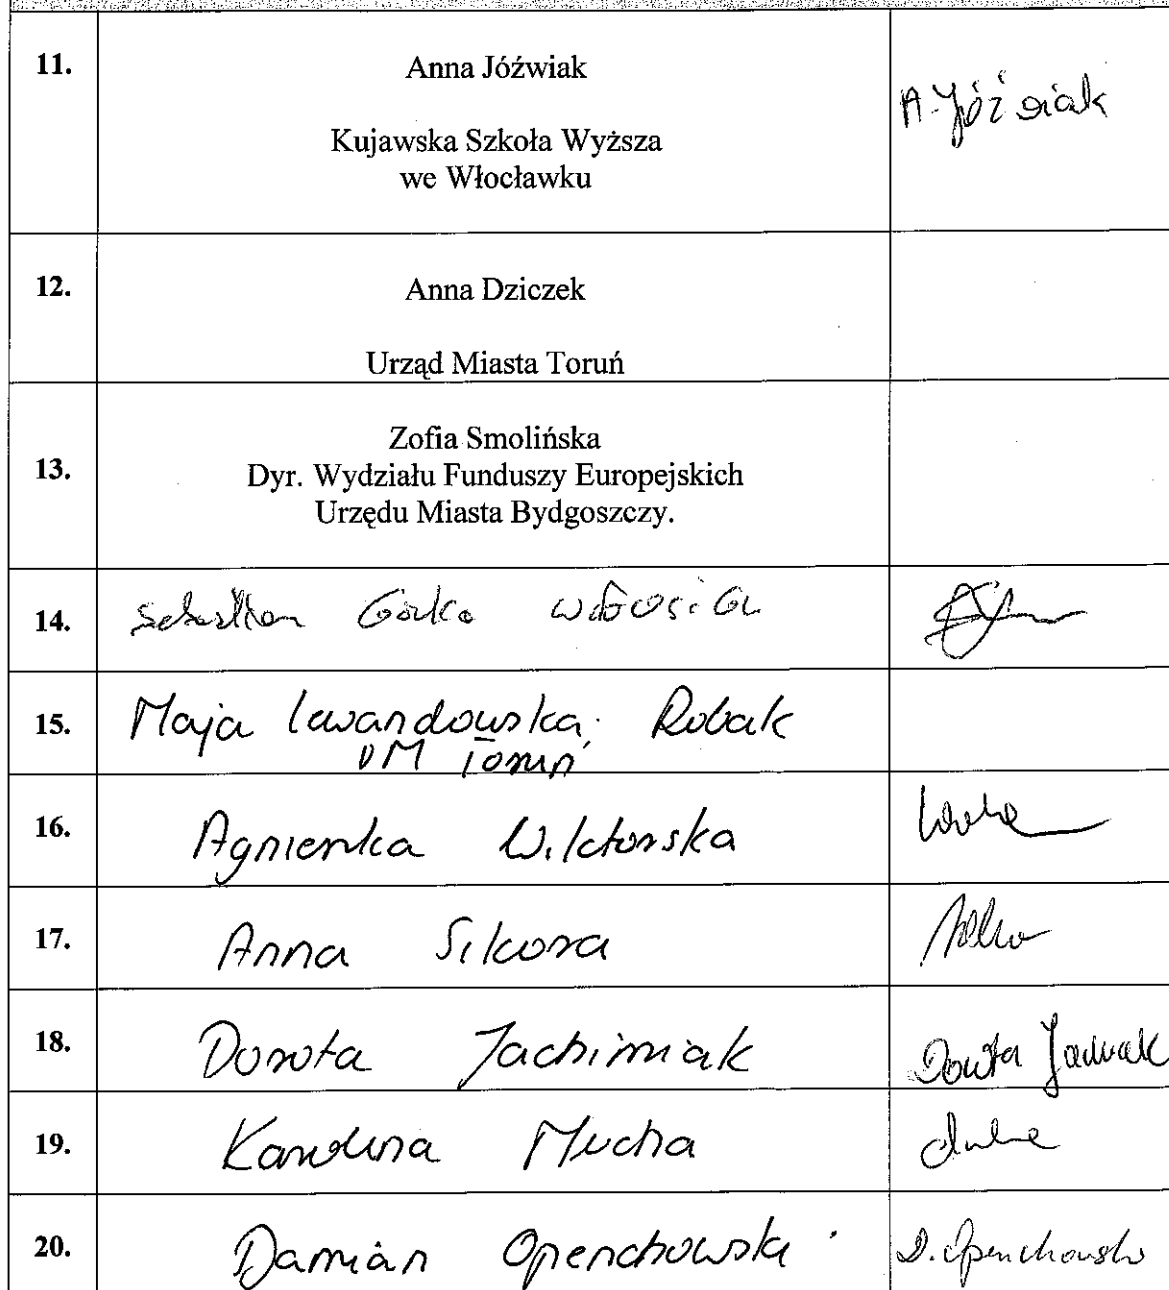 11.
Anna Jóźwiak
A. Jóźwiak
Kujawska Szkoła Wyższa
we Włocławku
12.
Anna Dziczek
Urząd Miasta Toruń
13.
Zofia Smolińska
Dyr. Wydziału Funduszy Europejskich
Urzędu Miasta Bydgoszczy.
14. Sebastian Górka
15. Maja Lewandowska-Robak
UM Toruń
16. Agnieszka Wiktorska
17. Anna Sikora
18. Dorota Jachimiak Dorota Jachimiak
19. Karolina Mucha
20. Damian Openchowski D. Openchowski